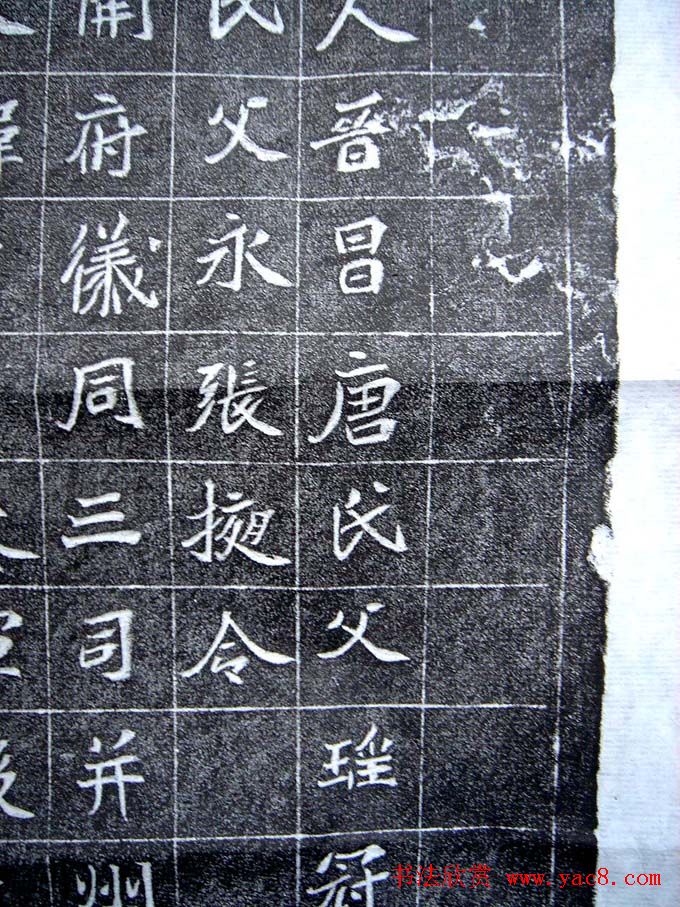 人晋昌唐氏父瑶冠
氏父永張掖令
開府儀同三司并州
书法欣赏 www.yac8.com